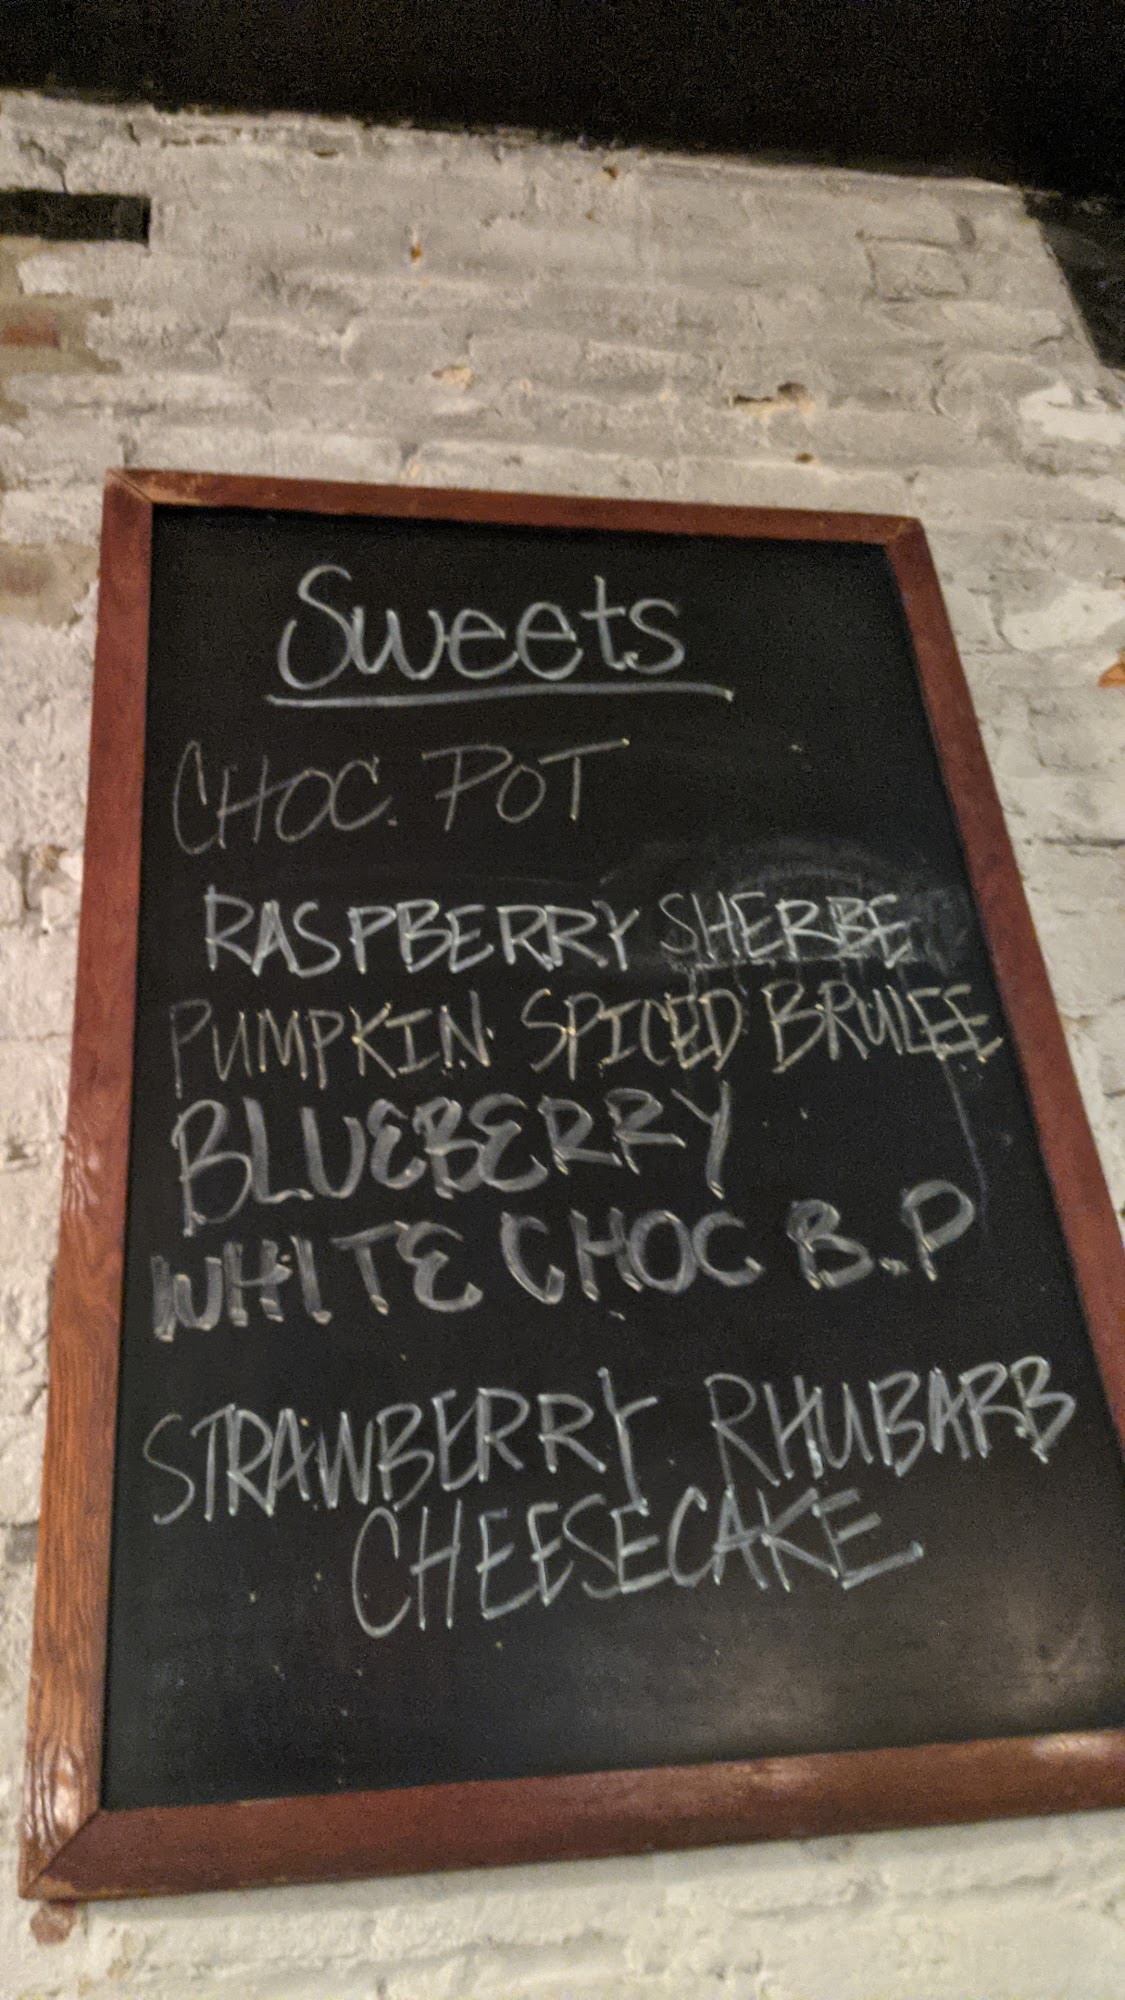 Sweets
CHOC. POT
RASPBERRY SHERBE
PUMPKIN SPICED BRULEE
BLUEBERRY
WHITE CHOC B.P
STRAWBERRY RHUBARB
CHEESECAKE